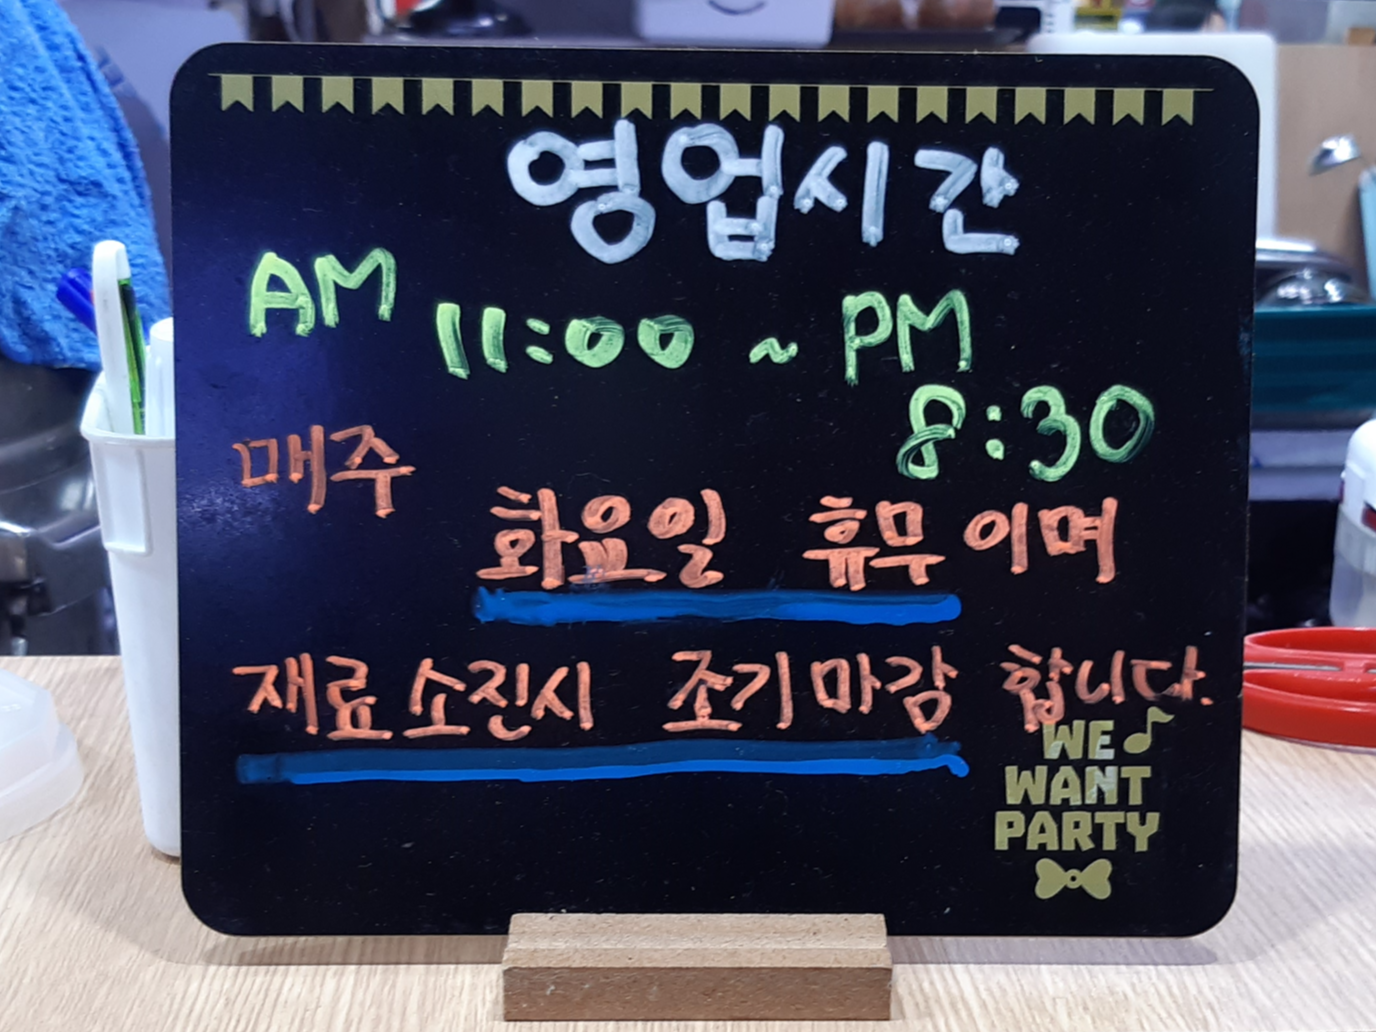 영업시간
AM 11:00 ~ PM
8:30
매주
화요일 휴무이며
재료소진시 조기마감 합니다.
WE
WANT
PARTY